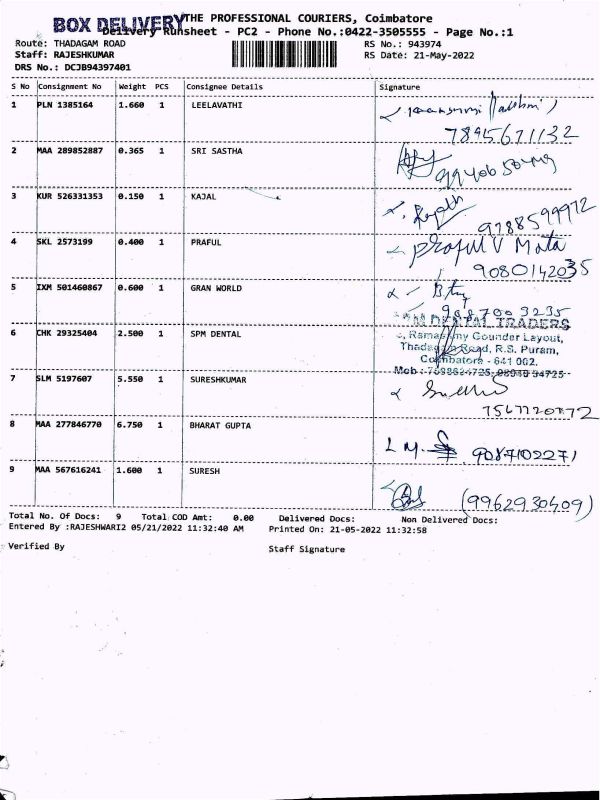 BOX DELIVERY
THE PROFESSIONAL COURIERS, Coimbatore
Delivery Runsheet - PC2 - Phone No.:0422-3505555 - Page No.:1
Route: THADAGAM ROAD
RS No.: 943974
Staff: RAJESHKUMAR
RS Date: 21-May-2022
DRS No.: DCJB94397401
S No Consignment No Weight PCS Consignee Details Signature
1 PLN 1385164 1.660 1 LEELAVATHI
7845671132
2 MAA 289852887 0.365 1 SRI SASTHA
3 KUR 526331353 0.150 1 KAJAL
9788599972
4 SKL 2573199 0.400 1 PRAFUL Praful V Mota
9080142035
5 IXM 501460867 0.600 1 GRAN WORLD
9087003235
DENTAL TRADERS
6 CHK 29325404 2.500 1 SPM DENTAL Gounder Layout,
Road, R.S. Puram,
Coimbatore - 641 002.
7 SLM 5197607 5.550 1 SURESHKUMAR
8 MAA 277846770 6.750 1 BHARAT GUPTA
L M. 9087102271
9 MAA 567616241 1.600 1 SURESH
(9962930409)
Total No. Of Docs: 9 Total COD Amt: 0.00 Delivered Docs: Non Delivered Docs:
Entered By :RAJESHWARI2 05/21/2022 11:32:40 AM Printed On: 21-05-2022 11:32:58
Verified By
Staff Signature